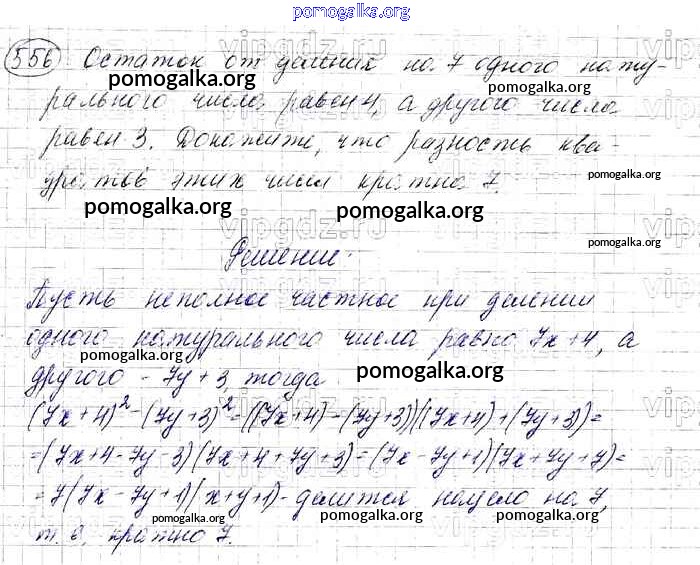 pomogalka.org
556 Остаток от деления на 7 одного нату-
рального числа равен 4, а другого числа
равен 3. Докажите, что разность ква-
дратов этих чисел кратна 7.
pomogalka.org
pomogalka.org
pomogalka.org
pomogalka.org pomogalka.org
pomogalka.org
Решение:
Пусть неполное частное при делении
одного натурального числа равно 7x+4, а
pomogalka.org
другого - 7y+3, тогда
pomogalka.org
(7x+4)²-(7y+3)²=((7x+4)-(7y+3))((7x+4)+(7y+3))=
=(7x+4-7y-3)(7x+4+7y+3)=(7x-7y+1)(7x+7y+7)=
=7(7x-7y+1)(x+y+1)- делится нацело на 7,
pomogalka.org pomogalka.org pomogalka.org
т.е. кратно 7.
vipgdz.ru